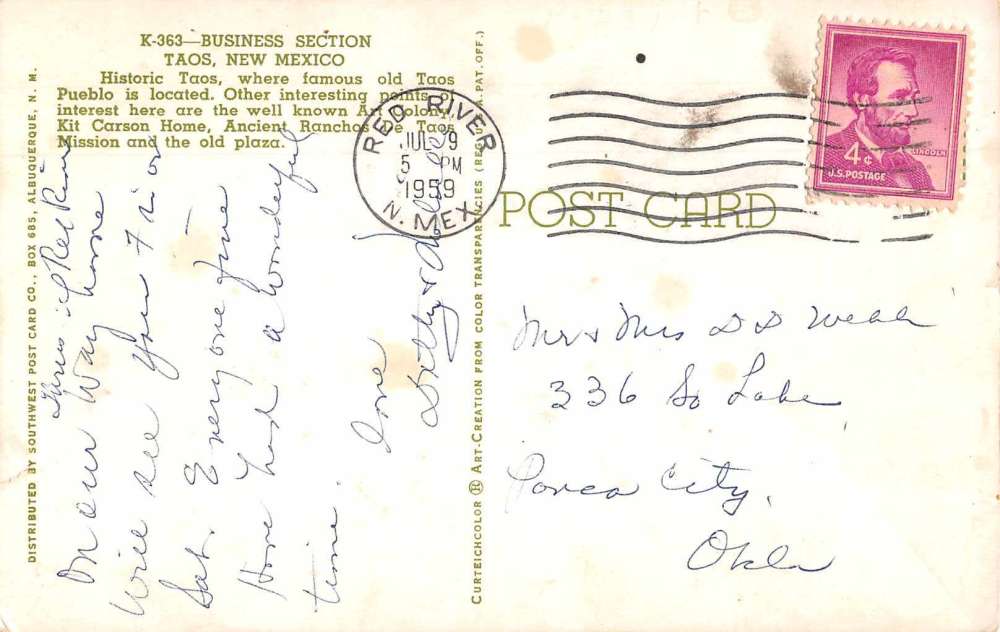 K-363—BUSINESS SECTION
TAOS, NEW MEXICO
Historic Taos, where famous old Taos
Pueblo is located. Other interesting points of
interest here are the well known Art Colony,
Kit Carson Home, Ancient Ranchos De Taos
Mission and the old plaza.
DISTRIBUTED BY SOUTHWEST POST CARD CO., BOX 685, ALBUQUERQUE, N. M.
On our Way home
Will see you Fri or
Sat. Everyone fine
Have had a Wonderful
time.
Love
CURTEICHCOLOR ® ART-CREATION FROM COLOR TRANSPARENCIES (REG. U.S.A. PAT. OFF.)
RED RIVER
JUL 29
5 PM
1959
N. MEX.
POST CARD
LINCOLN
4¢
U.S. POSTAGE
Mr & Mrs D D Webb
336 So Lake
Ponca City,
Okla